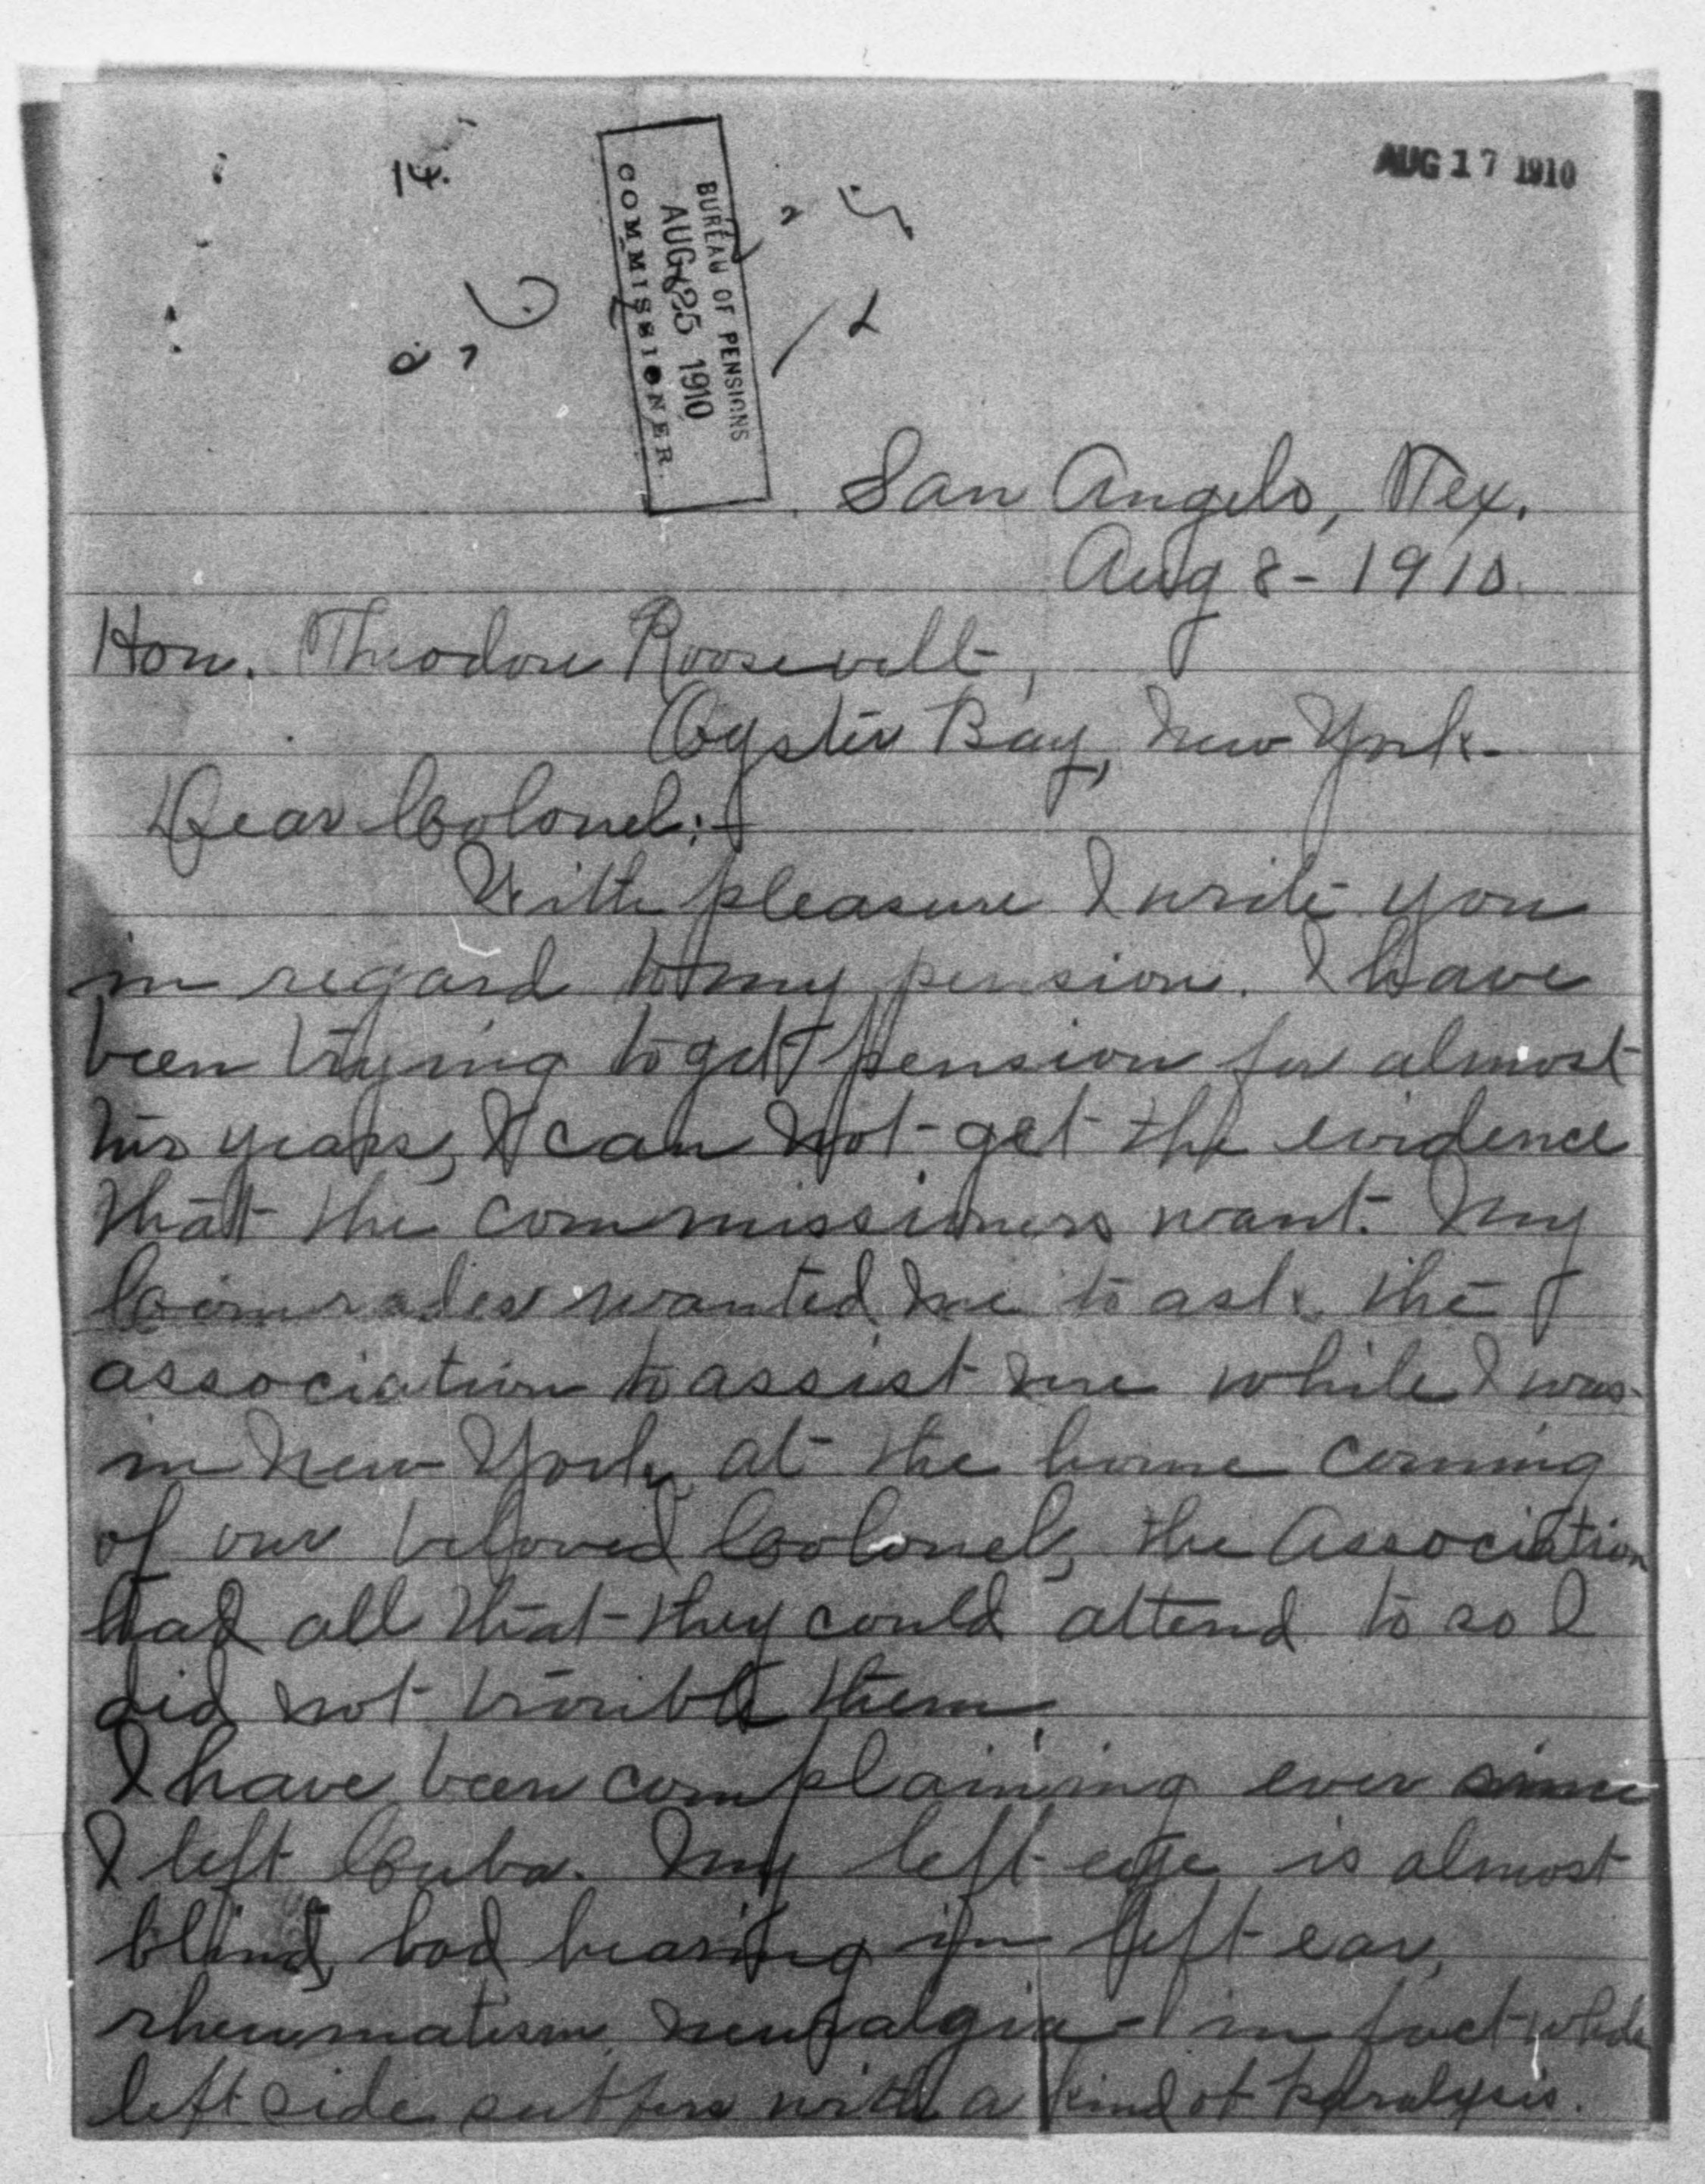 AUG 17 1910
14.
BUREAU OF PENSIONS
AUG 25 1910
COMMISSIONER
San Angelo, Tex.
Aug 8 - 1910.
Hon. Theodore Roosevelt,
Oyster Bay, New York-
Dear Colonel:-
With pleasure I write you
in regard to my pension. I have
been trying to get pension for almost
years, I can not get the evidence
that the commissioners want. My
Comrades wanted me to ask the
association to assist me while I was
in New York, at the home coming
of our beloved Colonel, the Association
had all that they could attend to so I
did not trouble them
I have been complaining ever since
I left Cuba. My left eye is almost
blind, bad hearing in left ear,
rheumatism neuralgia - in fact whole
left side suffers with a kind of paralysis.